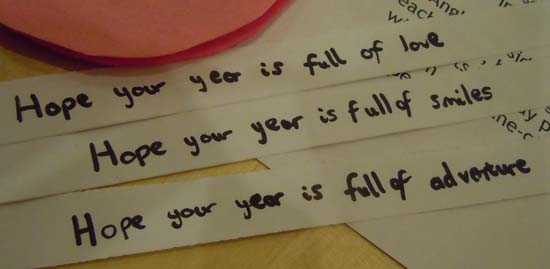 Hope your year is full of love
Hope your year is full of smiles
Hope your year is full of adventure